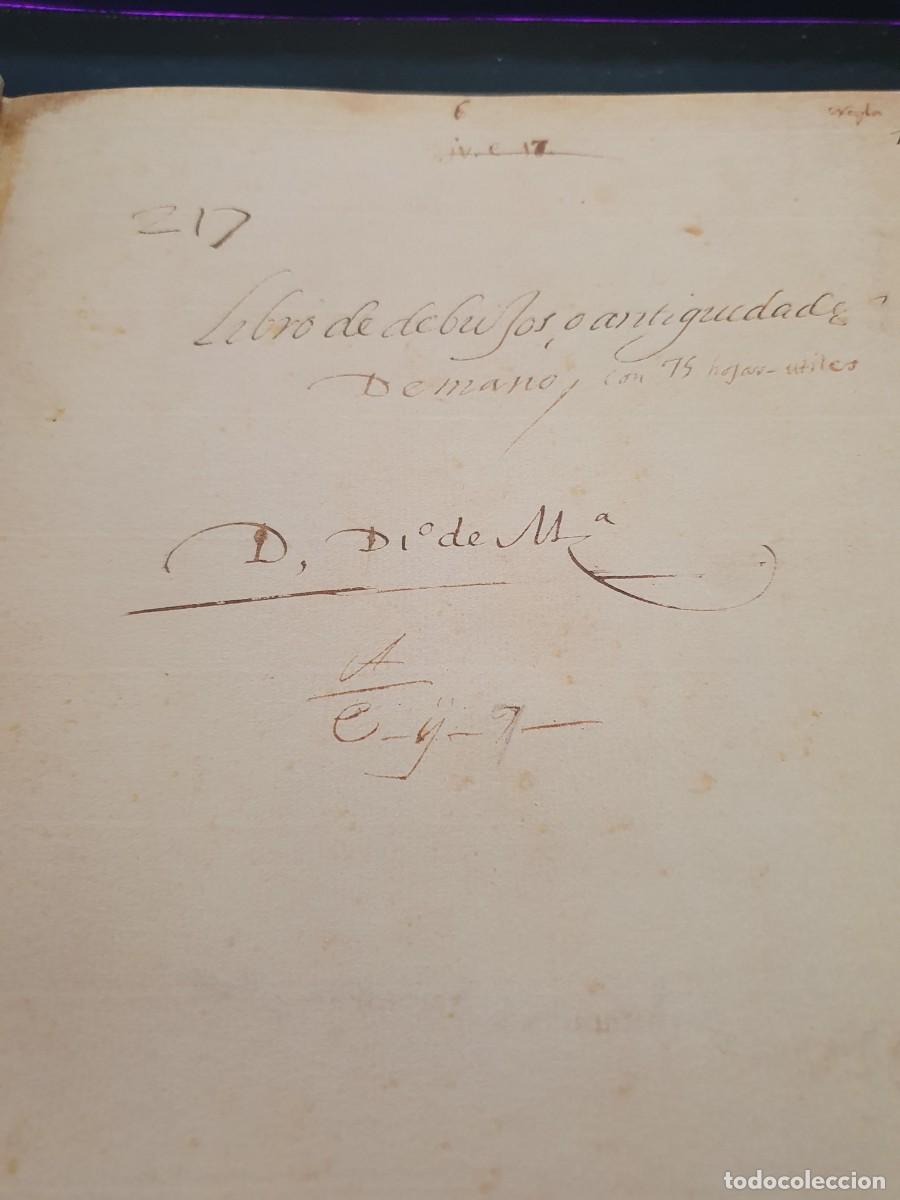 6
iv. c 17.
217
Libro de debuJos, o antiguedades
De mano, con 75 hojas utiles
D, Dio de Ma
A
C - ij - 7 -
todocoleccion